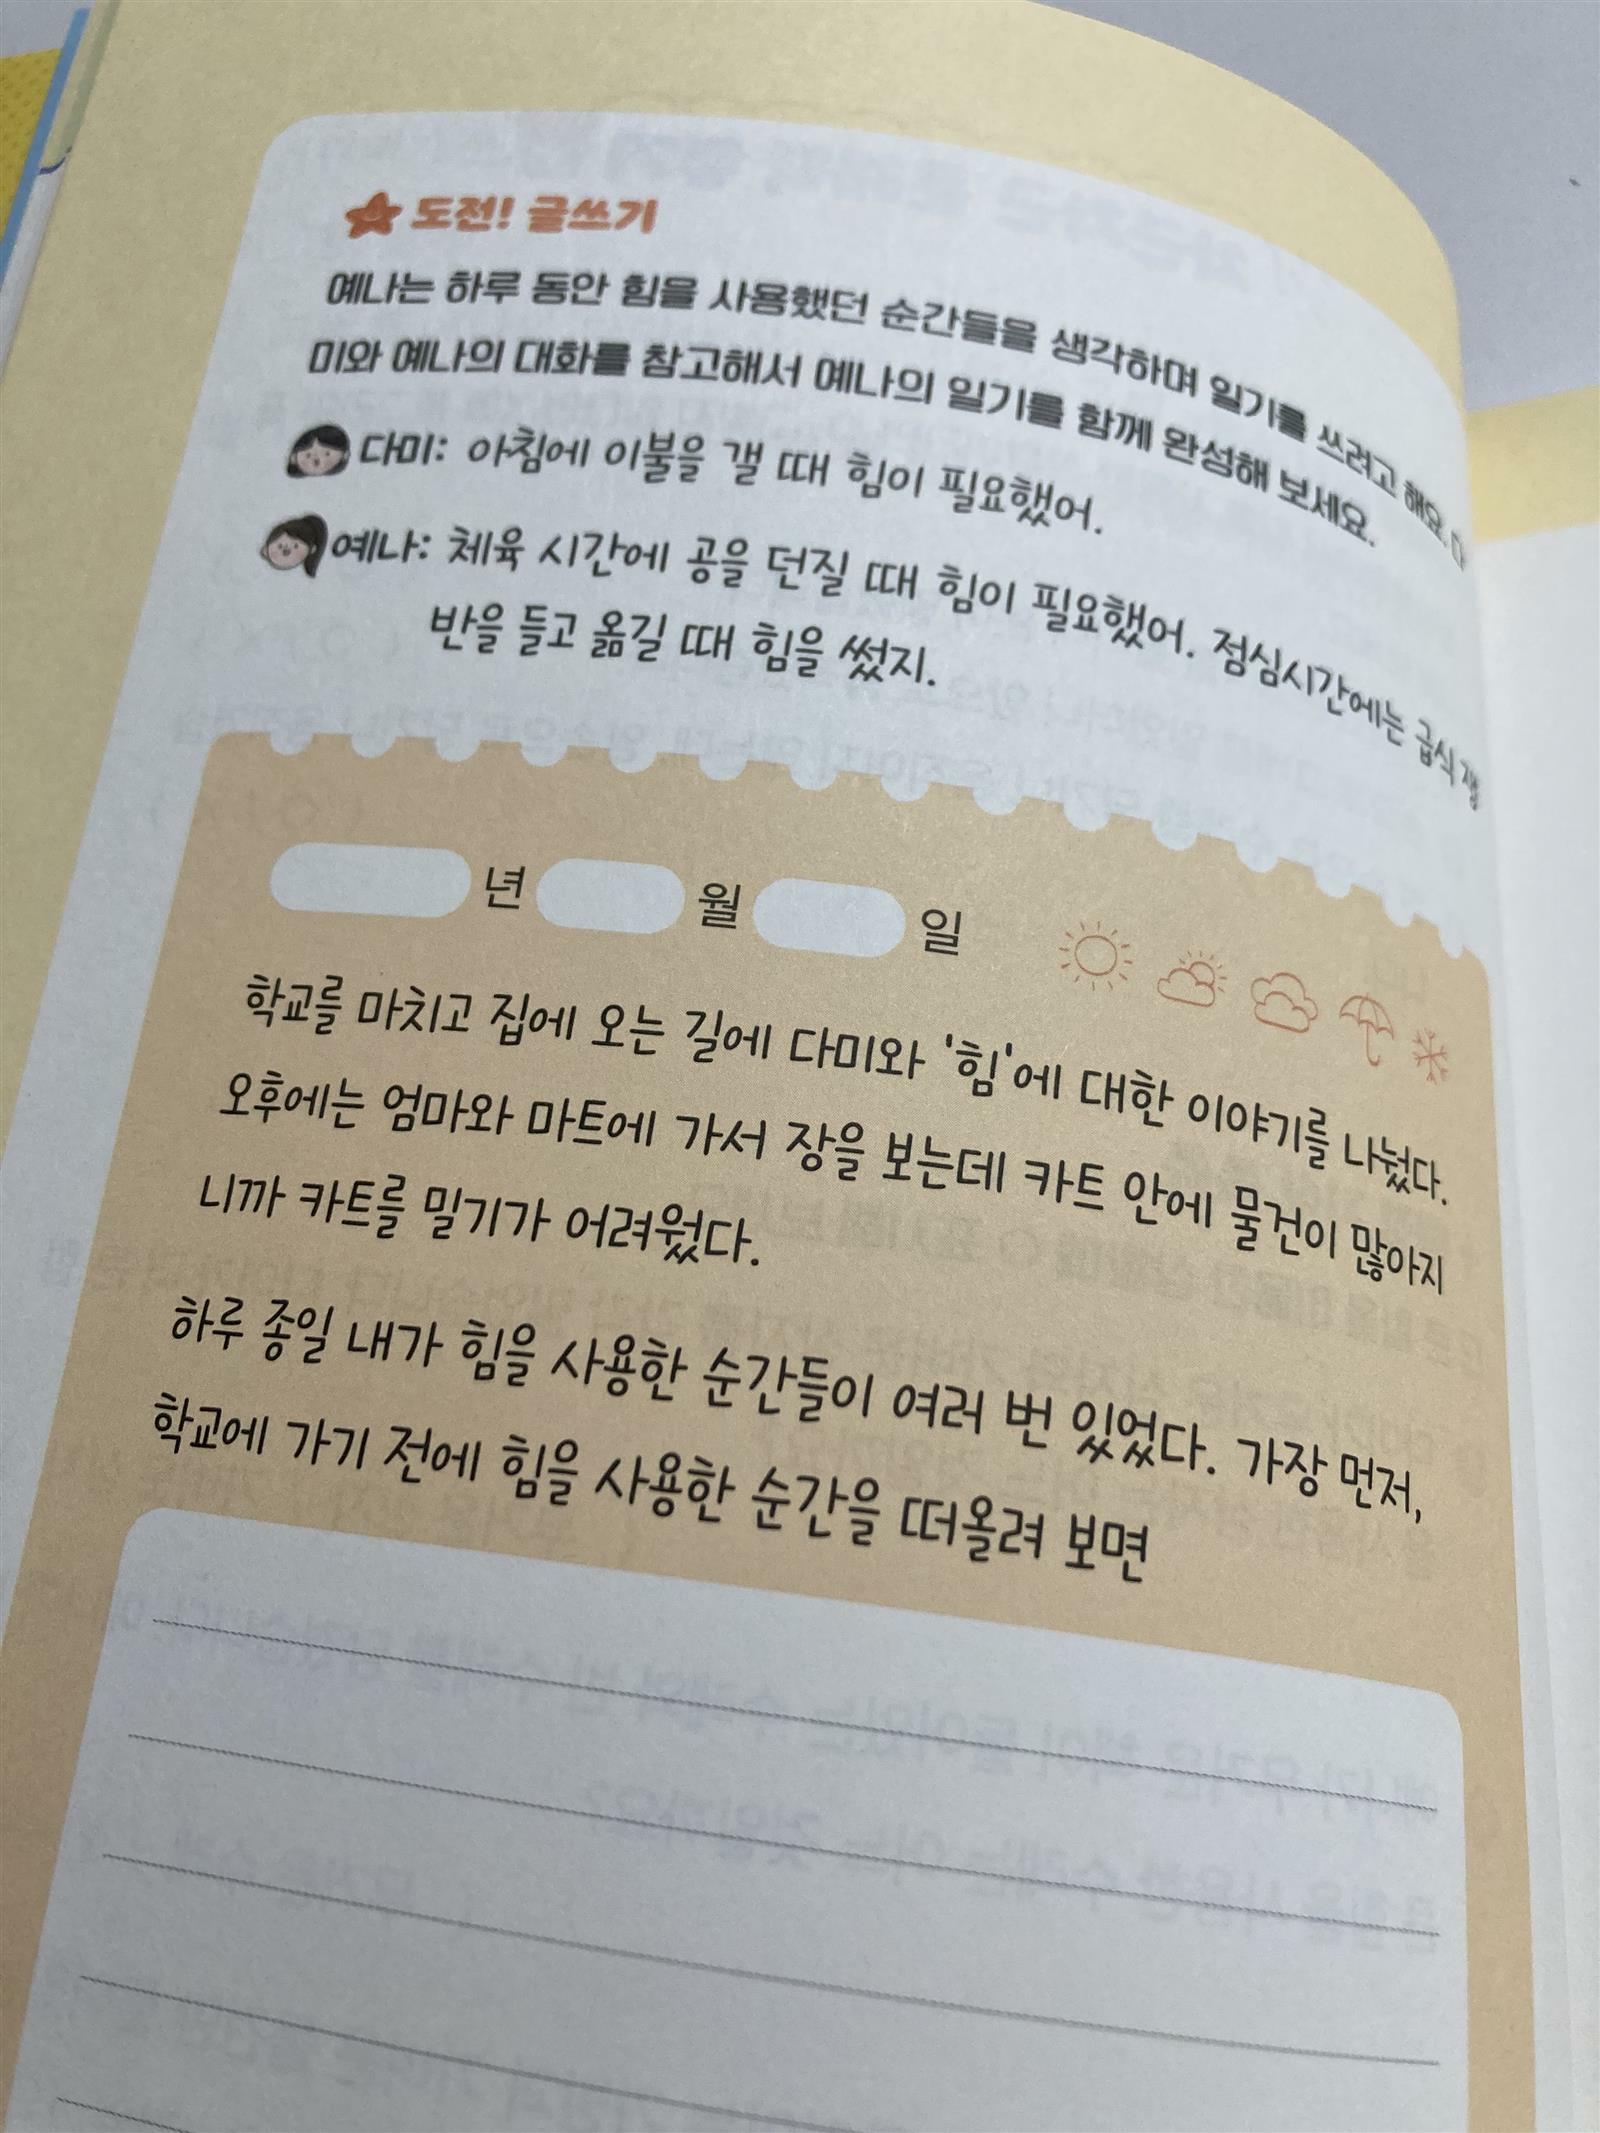 도전! 글쓰기
예나는 하루 동안 힘을 사용했던 순간들을 생각하며 일기를 쓰려고 해요. 다
미와 예나의 대화를 참고해서 예나의 일기를 함께 완성해 보세요.
다미: 아침에 이불을 갤 때 힘이 필요했어.
예나: 체육 시간에 공을 던질 때 힘이 필요했어. 점심시간에는 급식 쟁
반을 들고 옮길 때 힘을 썼지.
년 월 일
학교를 마치고 집에 오는 길에 다미와 '힘'에 대한 이야기를 나눴다.
오후에는 엄마와 마트에 가서 장을 보는데 카트 안에 물건이 많아지
니까 카트를 밀기가 어려웠다.
하루 종일 내가 힘을 사용한 순간들이 여러 번 있었다. 가장 먼저,
학교에 가기 전에 힘을 사용한 순간을 떠올려 보면